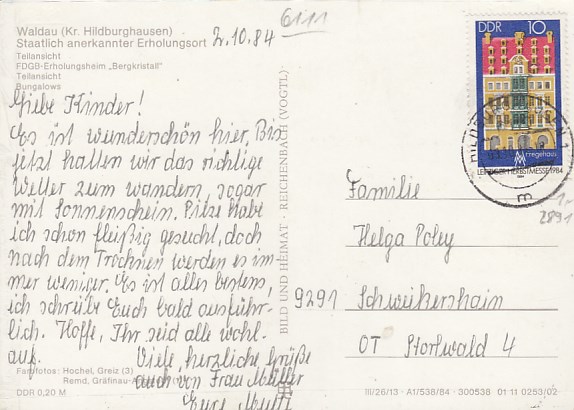 Waldau (Kr. Hildburghausen)
Staatlich anerkannter Erholungsort
Teilansicht
FDGB-Erholungsheim „Bergkristall"
Teilansicht
Bungalows
6111
2.10.84
Liebe Kinder!
Es ist wunderschön hier. Bis
jetzt hatten wir das richtige
Wetter zum wandern, sogar
mit Sonnenschein. Pilze habe
ich schon fleißig gesucht, doch
nach dem Trocknen werden es im-
mer weniger. Es ist alles bestens,
ich schreibe Euch bald ausführ-
lich. Hoffe, Ihr seid alle wohl-
auf.
Viele, herzliche Grüße
auch von Frau Müller
Eure Mutti
Farbfotos: Hochel, Greiz (3)
Remd, Gräfinau-
DDR 0,20 M
BILD UND HEIMAT · REICHENBACH (VOGTL)
DDR 10
Fregehaus
LEIPZIGER HERBSTMESSE 1984
m
1,-
2891
Familie
Helga Poley
9291 Schweikershain
OT Stortwald 4
III/26/13 · A1/538/84 · 300538 01 11 0253/02